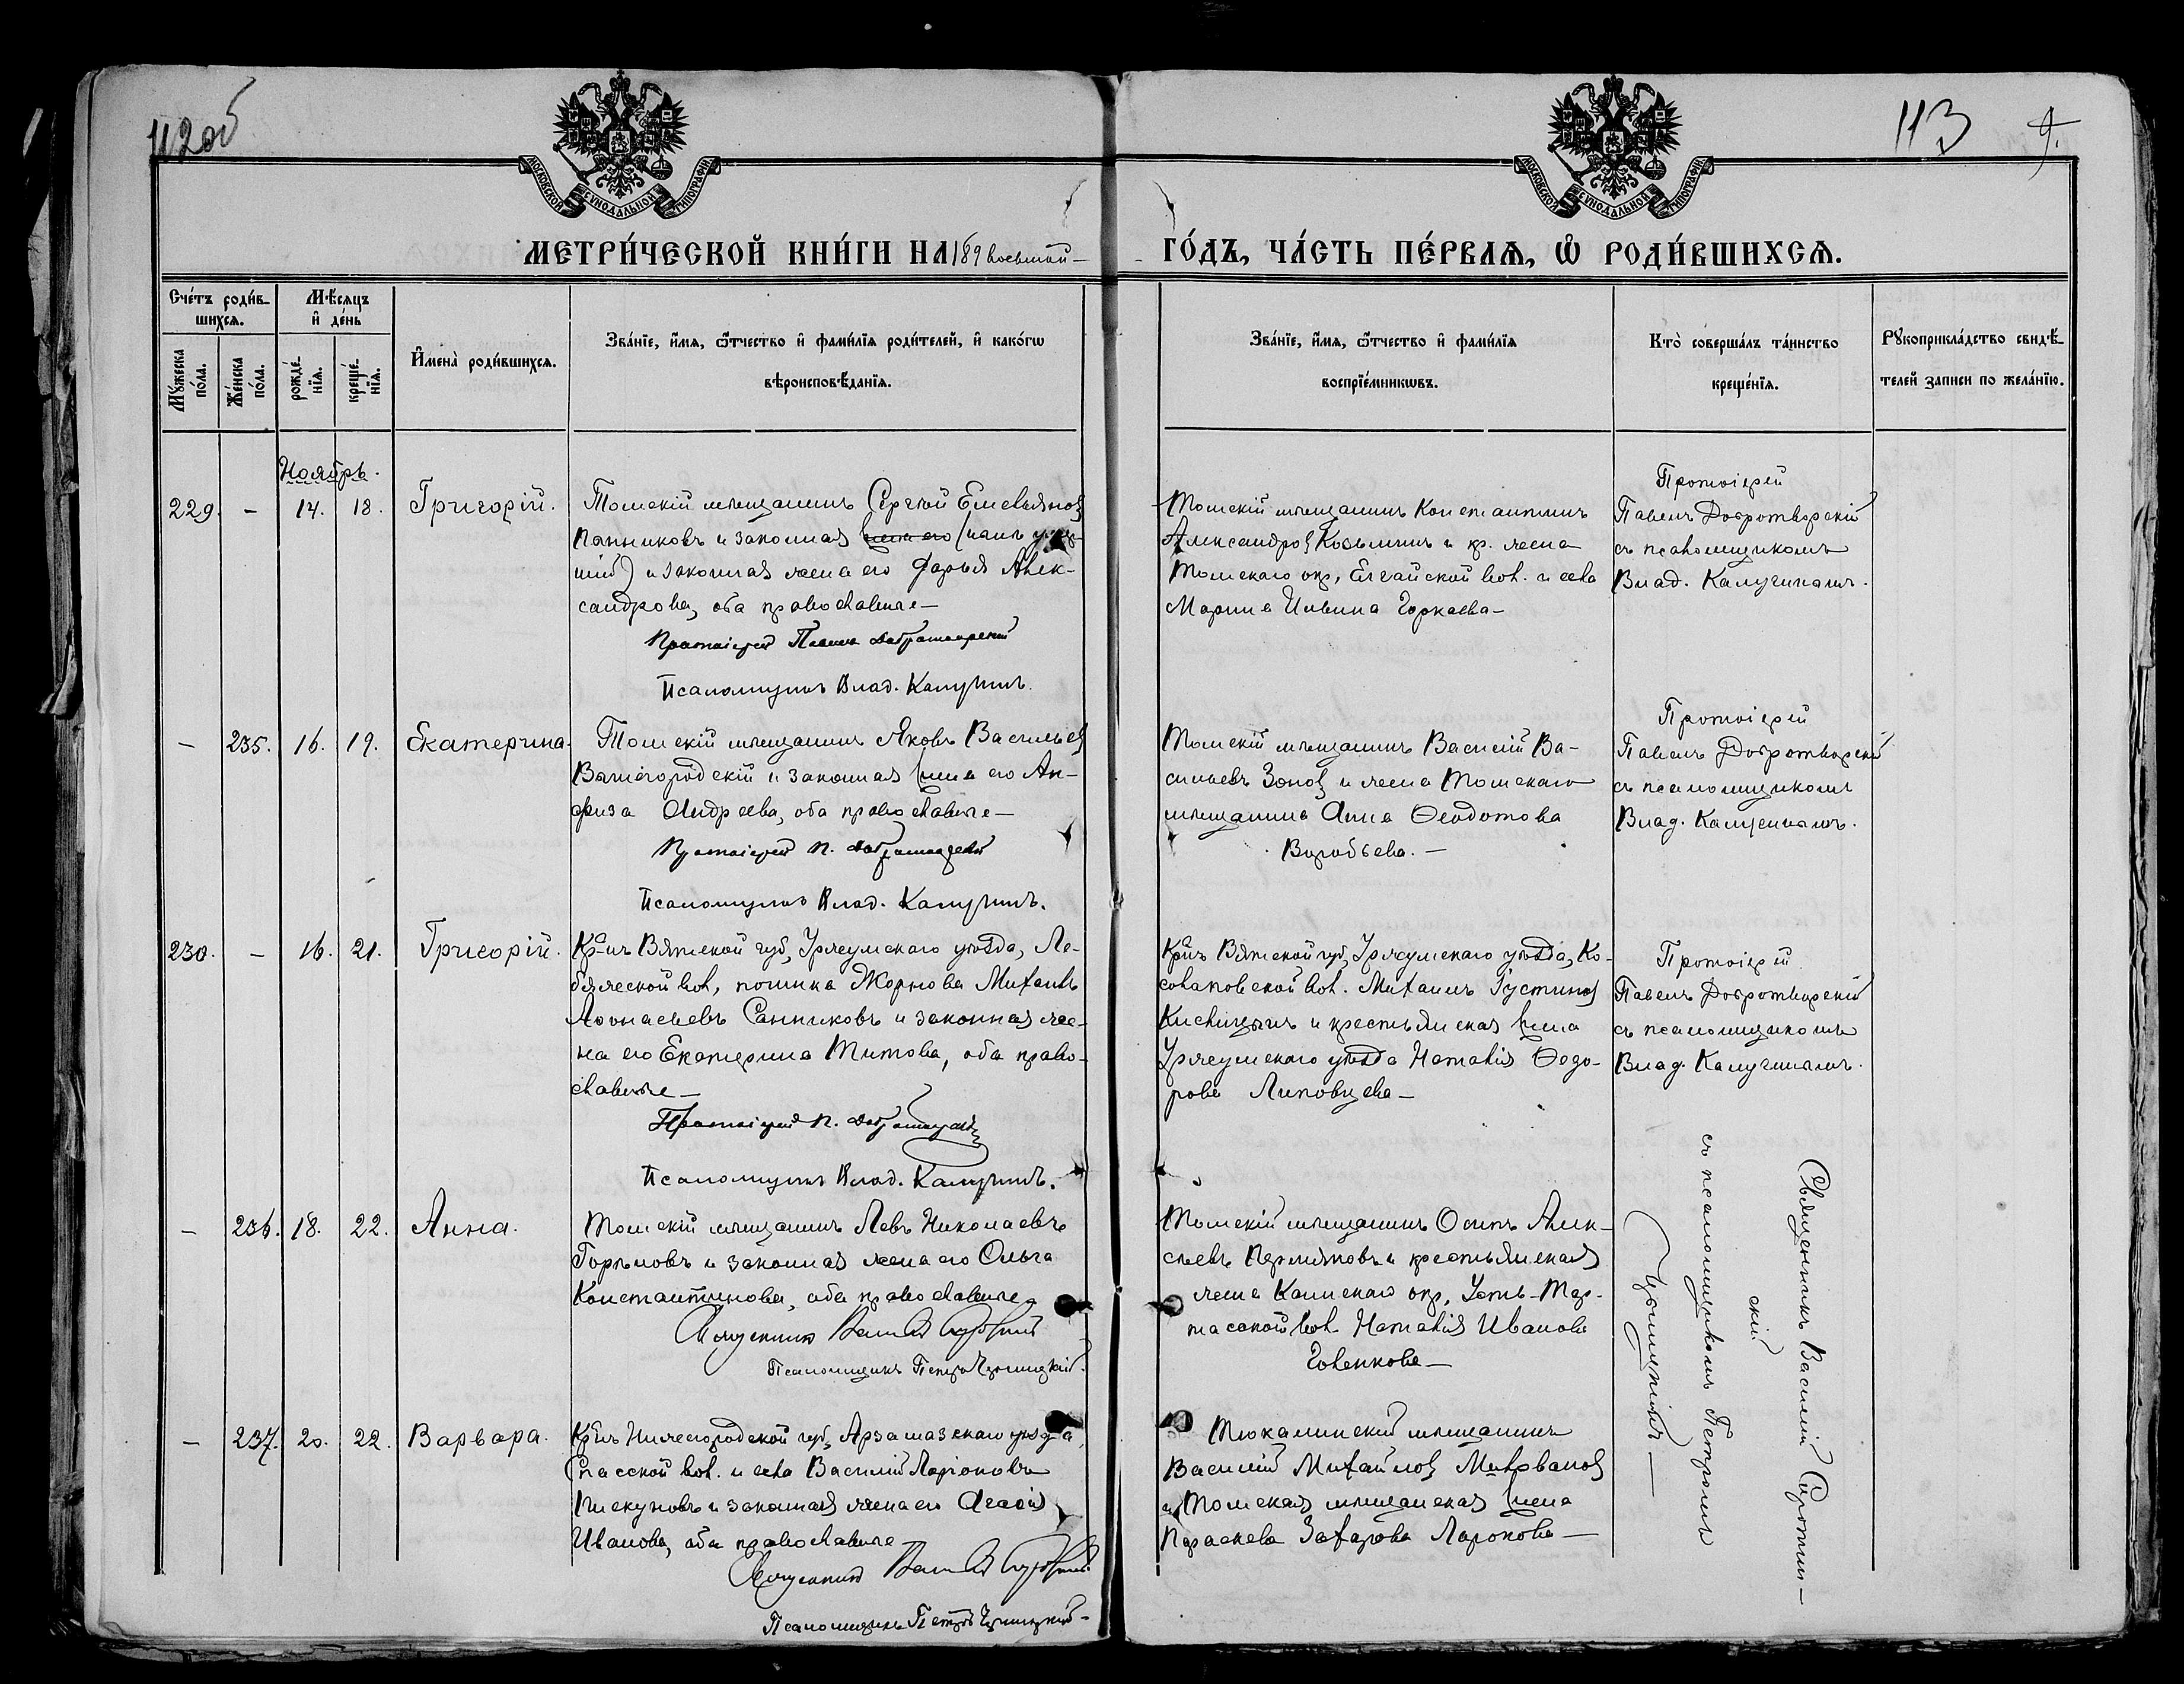 112об
113
9.
МОСКОВСКОЙ СѴНОДАЛЬНОЙ ТИПОГРАФІИ
МОСКОВСКОЙ СѴНОДАЛЬНОЙ ТИПОГРАФІИ
МЕТРИ́ЧЕСКОЙ КНИ́ГИ НА 189 восьмой —
ГО́ДЪ, ЧА́СТЬ ПЕ́РВАѦ, Ѽ РОДИ́ВШИХСѦ.
Сче́тъ роди́в-
шихсѧ.
Мѣ́сѧцъ
и҆ де́нь
Мꙋ́жеска
по́ла.
Же́нска
по́ла.
рожде́-
нїѧ.
креще́-
нїѧ.
И҆мена̀ роди́вшихсѧ.
Зва́нїе, и҆́мѧ, ѻ҆́тчество и҆ фами́лїѧ роди́телей, и҆ како́гѡ
вѣроисповѣ́данїѧ.
Зва́нїе, и҆́мѧ, ѻ҆́тчество и҆ фами́лїѧ
воспрїе́мникѡвъ.
Кто̀ соверша́лъ та́инство
креще́нїѧ.
Рꙋкоприкла́дство свидѣ́-
телей записи по жела́нїю.
Ноябрь.
229. – 14. 18. Григорій.
Томскій мѣщанинъ Сергѣй Емельяновъ
Панниковъ и законная жена его
и законная жена его Дарья Алек-
сандрова, оба православные —
Протоіерей Павелъ Добротворскій
Псаломщикъ Влад. Калугинъ.
Томскій мѣщанинъ Константинъ
Александровъ Козьминъ и кр. жена
Томскаго окр, Елгайской вол. и села
Марина Ильина Горкаева —
Протоіерей
Павелъ Добротворскій
съ псаломщикомъ
Влад. Калугинымъ.
– 235. 16. 19. Екатерина.
Томскій мѣщанинъ Яковъ Васильевъ
Вышегородскій и законная жена его Ан-
физа Андреева, оба православные —
Протоіерей П. Добротворскій
Псаломщикъ Влад. Калугинъ.
Томскій мѣщанинъ Василій Ва-
сильевъ Зоновъ и жена Томскаго
мѣщанина Анна Ѳеодотова
Воробьева. —
Протоіерей
Павелъ Добротворскій
съ псаломщикомъ
Влад. Калугинымъ.
230. – 16. 21. Григорій.
Кр-нъ Вятской губ, Уржумскаго уѣзда, Ле-
бяжской вол, починка Жорнова Михаилъ
Аѳонасьевъ Санниковъ и законная же-
на его Екатерина Титова, оба право-
славные —
Протоіерей П. Добротворскій
Псаломщикъ Влад. Калугинъ.
Кр-нъ Вятской губ, Уржумскаго уѣзда, Ко-
вол. Михаилъ Іустиновъ
Кислицынъ и крестьянская жена
Уржумскаго уѣзда Наталія Ѳедо-
рова Липовцева —
Протоіерей
Павелъ Добротворскій
съ псаломщикомъ
Влад. Калугинымъ.
– 236. 18. 22. Анна.
Томскій мѣщанинъ Левъ Николаевъ
и законная жена его Ольга
Константинова, оба православные
Священникъ Василій
Псаломщикъ Петръ
Томскій мѣщанинъ Осипъ Алек-
сѣевъ Пермяковъ и крестьянская
жена Каинскаго окр, Усть-Тар-
таской вол. Наталія Иванова
Голенкова —
Священникъ Василій Сиротин-
скій
съ псаломщикомъ Петромъ
– 237. 20. 22. Варвара.
Кр-нъ Нижегородской губ, Арзамазскаго уѣзда,
Спасской вол. и села Василій Ларіоновъ
Пискуновъ и законная жена его Агаѳія
Иванова, оба православные
Священникъ Василій
Псаломщикъ Петръ
Тюкалинскій мѣщанинъ
Василій Михайловъ
и Томская мѣщанская жена
Параскева Захарова Ларіонова —